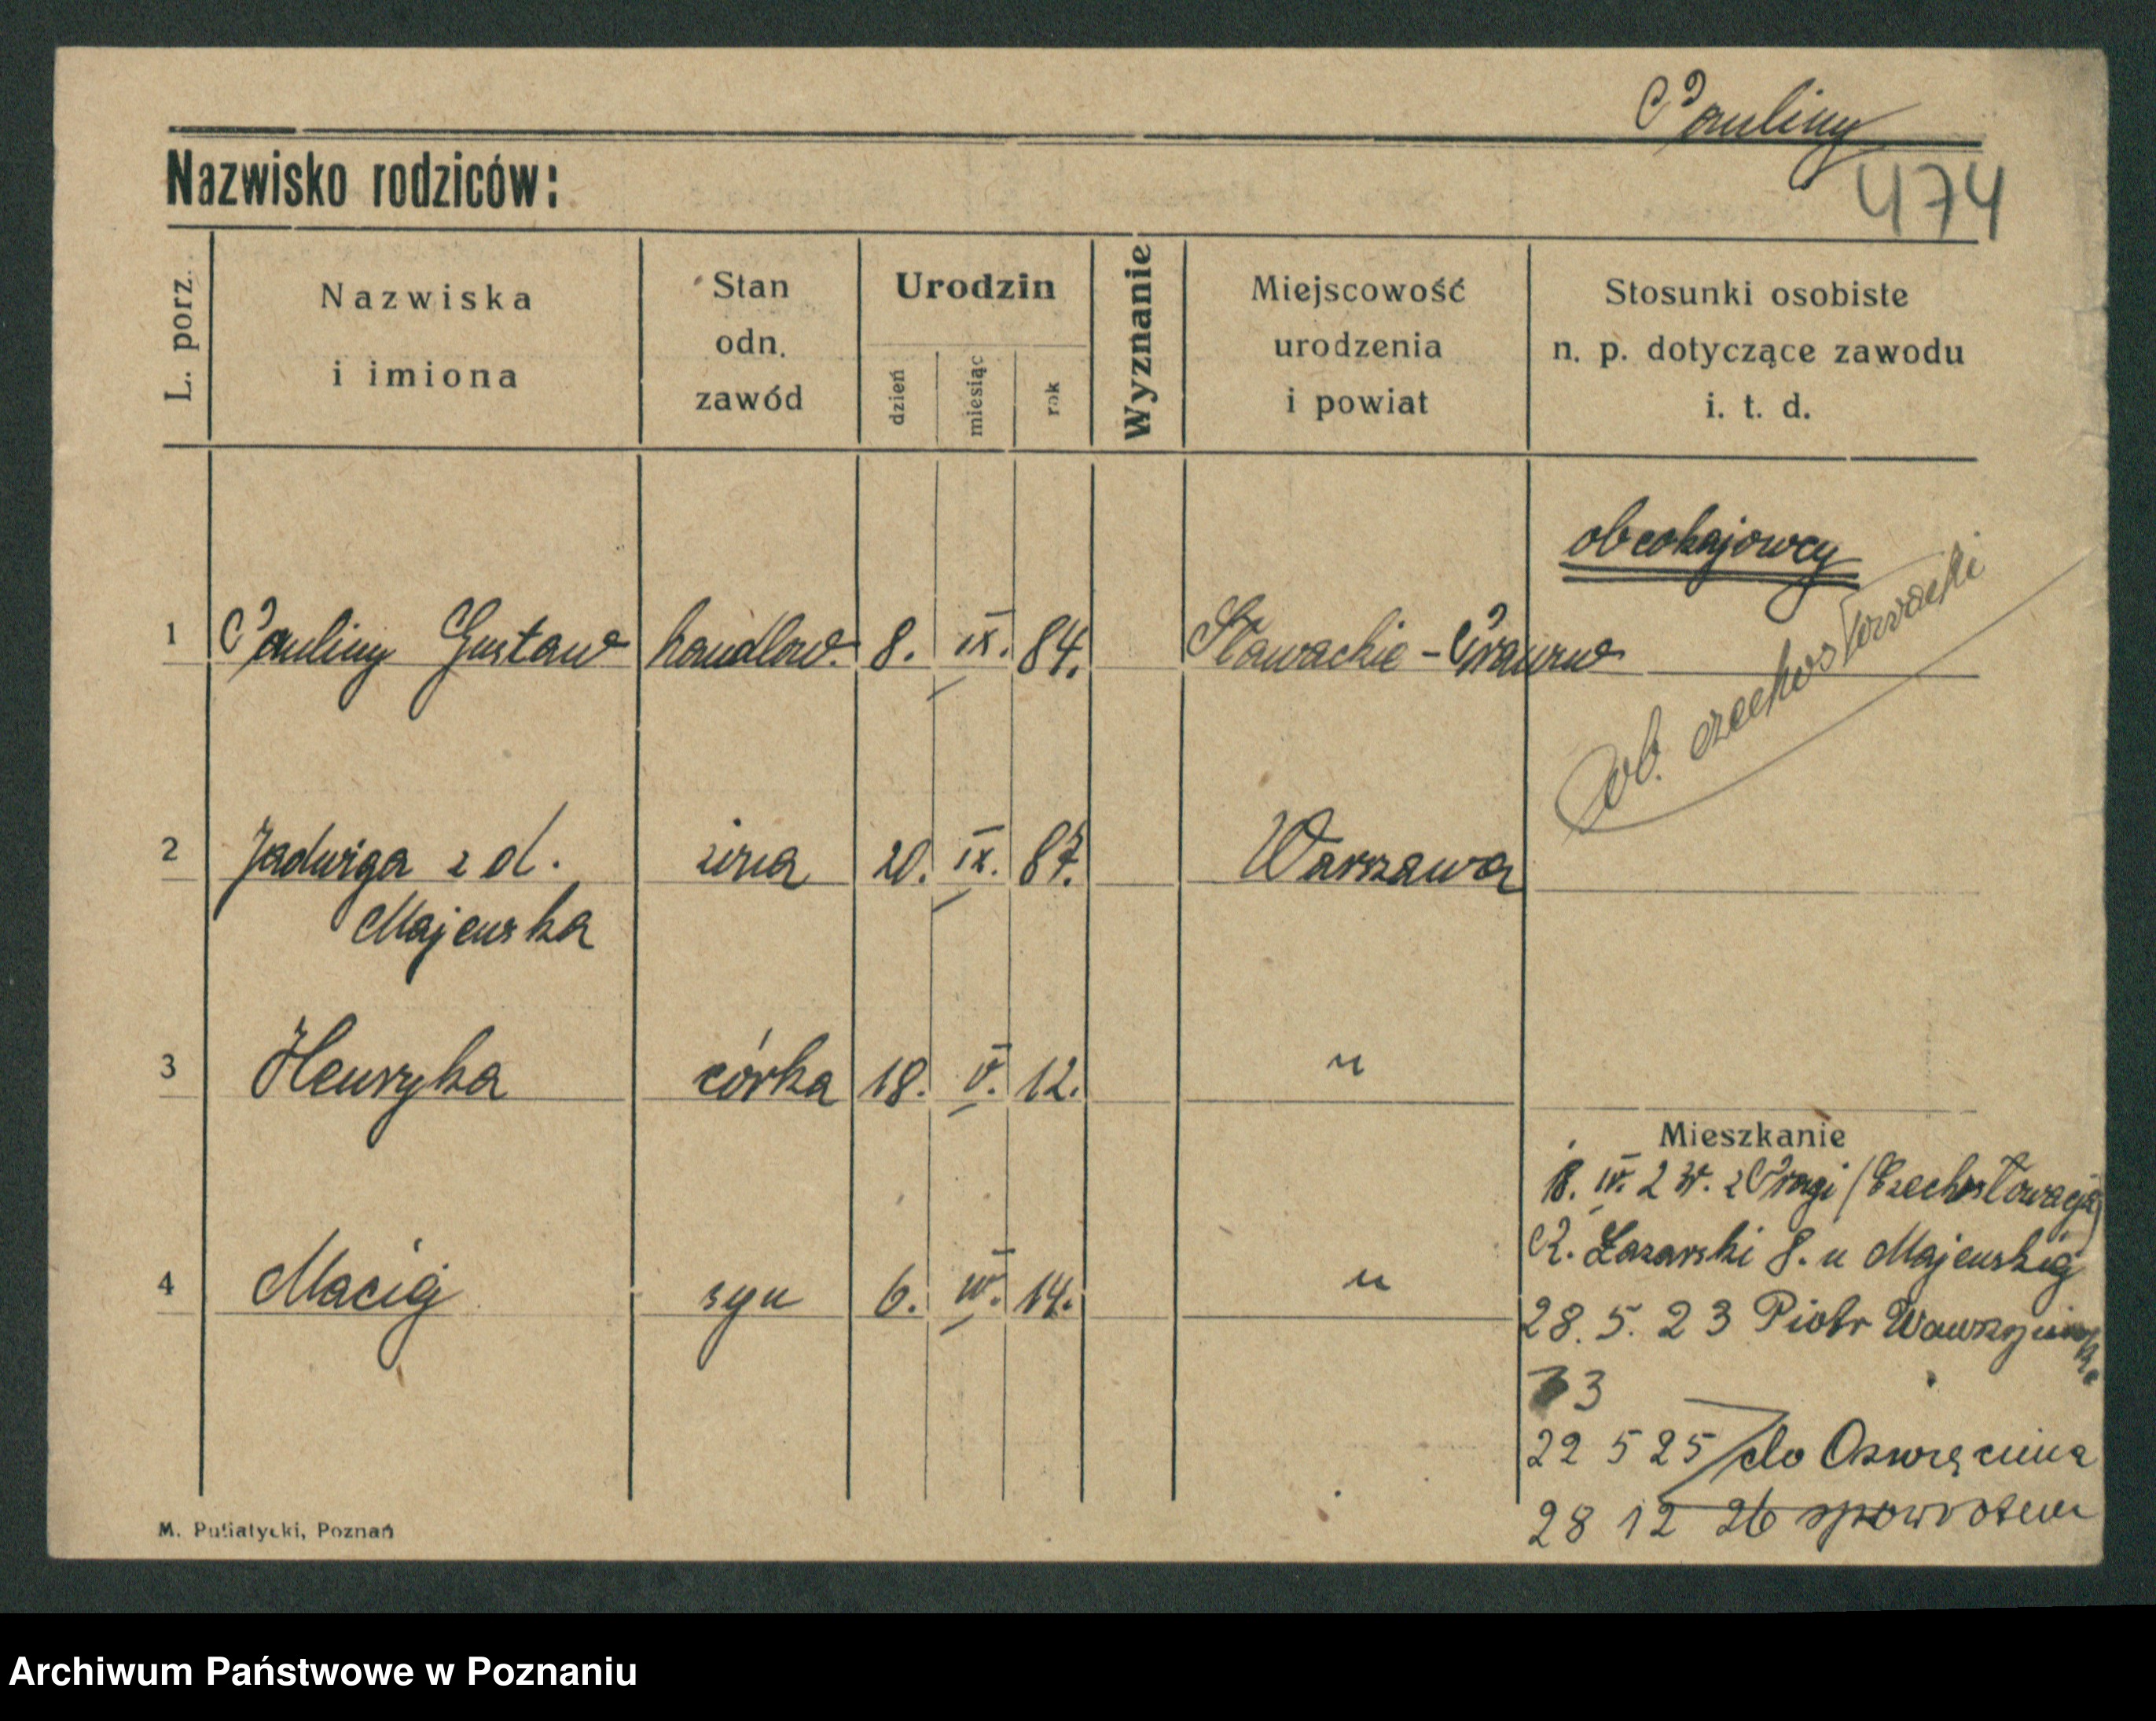 Pauliny
474
Nazwisko rodziców:
L. porz. Nazwiska i imiona Stan odn. zawód Urodzin dzień miesiąc rok Wyznanie Miejscowość urodzenia i powiat Stosunki osobiste n. p. dotyczące zawodu i. t. d.
obcokajowcy
ob. czechosłowacki
1 Pauliny Gustaw handlow. 8. IX. 84. Sławackie -
2 Jadwiga z d. żona 20. IX. 87. Warszawa
Majewska
3 Henryka córka 18. V. 12. "
4 Maciej syn 6. 14. "
Mieszkanie
z Pragi (Czechosłowacja)
R. Łazarski 8. u Majewskiej
28. 5. 23 Piotr
33
22 5 25 do Oswięcima
28 12 26 spowrotem
M. Putiatycki, Poznań
Archiwum Państwowe w Poznaniu